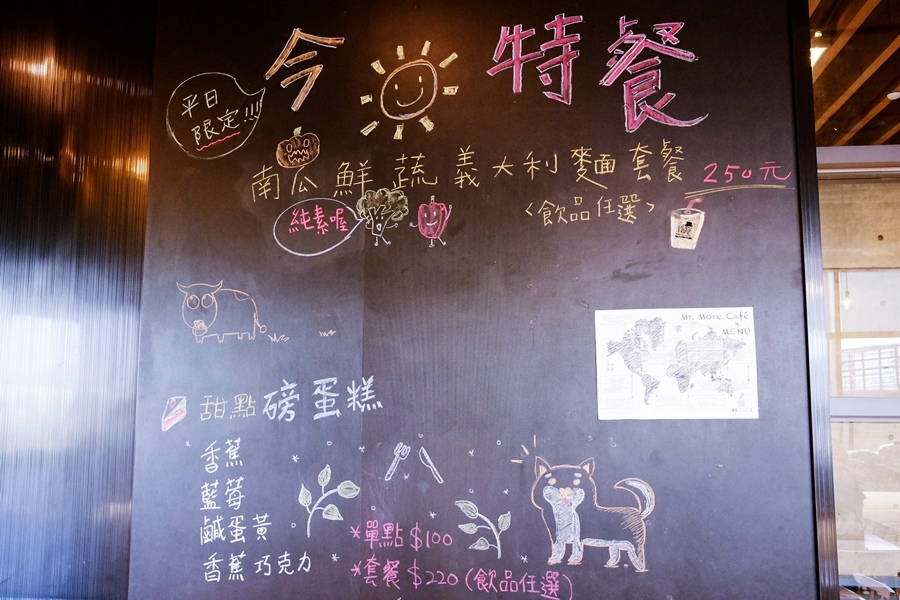 今 特餐
平日
限定!!!!
南瓜鮮蔬義大利麵套餐 250元
純素喔
<飲品任選>
Mr. More Café
×
MENU
甜點磅蛋糕
香蕉
藍莓
鹹蛋黃
香蕉巧克力
*單點 $100
*套餐 $220 (飲品任選)